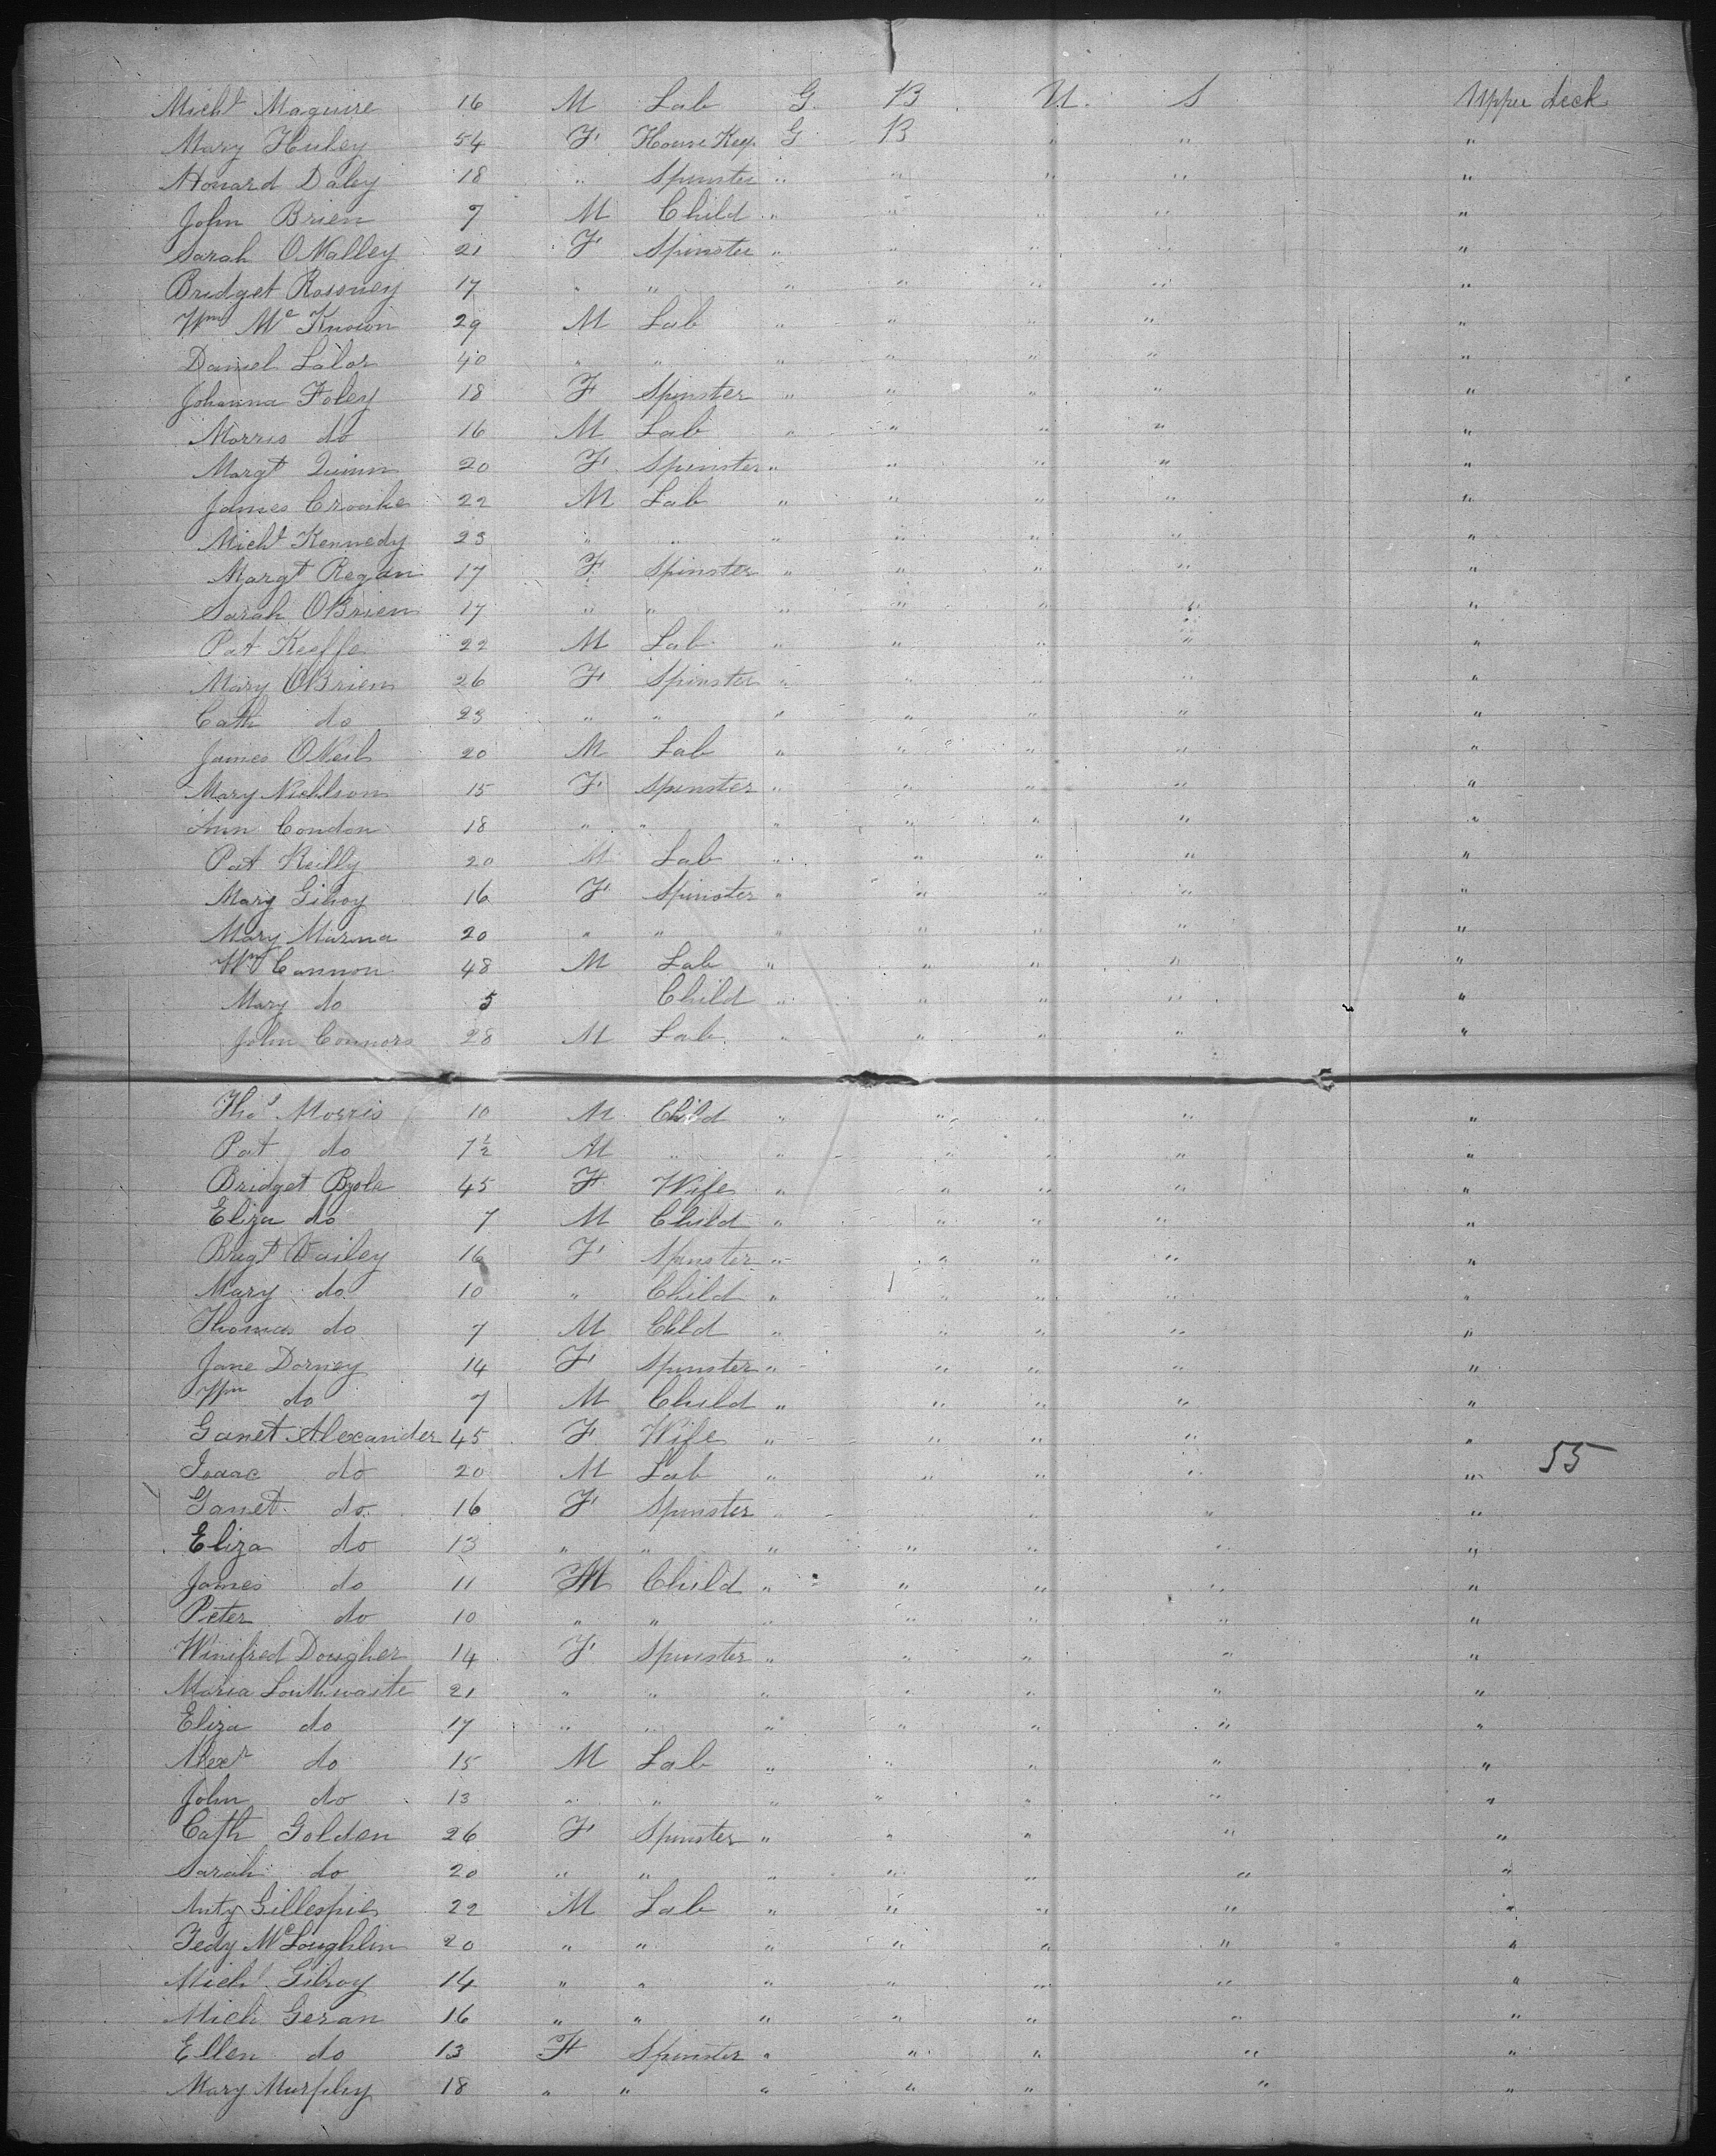 Michl Maguire 16 M Lab G. B U. S Upper deck
Mary Huley 54 F House Keep G B " " "
Honard Daley 18 " Spinster " " " " "
John Brien 7 M Child " " " " "
Sarah OMalley 21 F Spinster " " " " "
Bridget Rossney 17 " " " " " " "
Wm Mc Known 29 M Lab " " " " "
Daniel Lalor 40 " " " " " " "
Johanna Foley 18 F Spinster " " " " "
Morris do 16 M Lab " " " " "
Margt Quinn 20 F Spinster " " " " "
James Croake 22 M Lab " " " " "
Michl Kennedy 23 " " " " " " "
Margt Regan 17 F Spinster " " " " "
Sarah OBrien 17 " " " " " " "
Pat Keeffe 22 M Lab " " " " "
Mary OBrien 26 F Spinster " " " " "
Cath do 23 " " " " " " "
James ONeil 20 M Lab " " " " "
Mary Nichlson 15 F Spinster " " " " "
Ann Condon 18 " " " " " " "
Pat Reilly 20 M Lab " " " " "
Mary Gilroy 16 F Spinster " " " " "
Mary Murma 20 " " " " " " "
Wm Cannon 48 M Lab " " " " "
Mary do 5 Child " " " " "
John Connors 28 M Lab " " " " "
Thos Morris 10 M Child " " " " "
Pat do 7½ M " " " " " "
Bridget 45 F Wife " " " " "
Eliza do 7 M Child " " " " "
Brigt 16 F Spinster " " " " "
Mary do 10 " Child " " " " "
Thomas do 7 M Child " " " " "
Jane Dorney 14 F Spinster " " " " "
Wm do 7 M Child " " " " "
Ganet Alexander 45 F Wife " " " " "
Isaac do 20 M Lab " " " " " 55
Ganet do 16 F Spinster " " " "
Eliza do 13 " " " " " " "
James do 11 M Child " " " " "
Peter do 10 " " " " " " "
Winifred Dougher 14 F Spinster " " " " "
Maria Southwaite 21 " " " " " " "
Eliza do 17 " " " " " " "
Alexr do 15 M Lab " " " " "
John do 13 " " " " " " "
Cath Golden 26 F Spinster " " " " "
Sarah do 20 " " " " " " "
Anty Gillespie 22 M Lab " " " " "
Tedy McLoughlin 20 " " " " " " "
Michl Gilroy 14 " " " " " " "
Mich Geran 16 " " " " " " "
Ellen do 13 F Spinster " " " " "
Mary Murphy 18 " " " " " " "